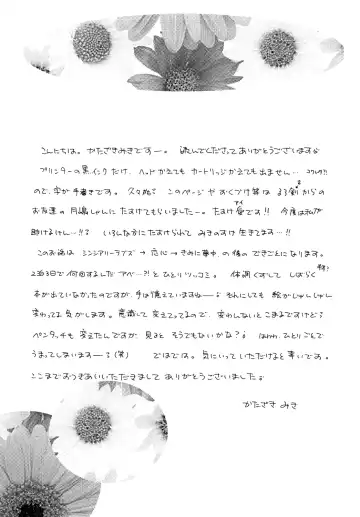 こんにちは。かたざきみきですー。読んでくださってありがとうございます。
プリンターの黒インクだけ、ヘッドかえても カートリッジかえても出ません…
ので、字が手書きです。久々だ？ このページや おくづけ等は まる 剣 からの
お友達の 月嶋しゃんに たすけてもらいましたー。たすけ愛です!! 今度は私が
助けるけん…!!? いろんなかたに たすけられて みきのすけ 生きてます…!!
このお話は シンシアリーラブズ→恋心→きみに夢中 の後の できごとになります。
2泊3日で 何回するんだ アベー?! と ひとりツッコミ。 体調くずして しばらく
本が出ていなかったのですが、手は憶えていますねー。それにしても 絵がしゃしゃん
変わってる気がします。意識して 変えてってるので、変わんないと こまるですけど
ペンタッチも 変えたんですが、見ると そうでもないかな？ ひとりごとで
うまってしまいますー（笑） ではでは。気にいって いただけると 幸いです。
ここまで おつきあいいただきまして ありがとうございました。
かたざき みき